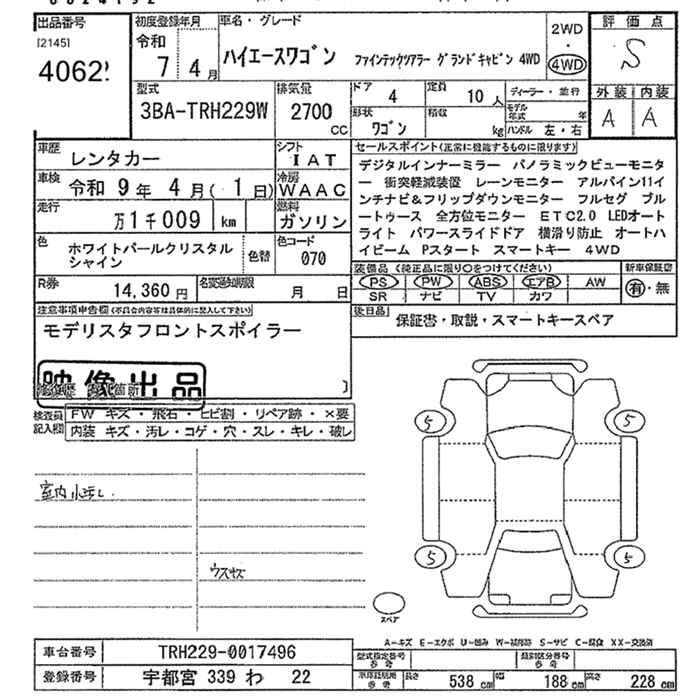 出品番号 初度登録年月 車名・グレード 2WD ・ 4WD 評価点
[2145] 令和 7年 4月 ハイエースワゴン ファインテックツアラー グランドキャビン 4WD S
4062
型式 排気量 ドア 4 定員 10人 ディーラー・並行 外装 内装
3BA-TRH229W 2700 CC 形状 ワゴン 積載 kg モデル年式 年 ハンドル 左・右 A A
車歴 レンタカー シフト IAT セールスポイント(正常に機能するものに限ります)
車検 令和 9年 4月( 1日) 冷房 WAAC
走行 万1千009 km 燃料 ガソリン
デジタルインナーミラー パノラミックビューモニタ
ー 衝突軽減装置 レーンモニター アルパイン11イ
ンチナビ&フリップダウンモニター フルセグ ブル
ートゥース 全方位モニター ETC2.0 LEDオート
ライト パワースライドドア 横滑り防止 オートハ
イビーム Pスタート スマートキー 4WD
色 ホワイトパールクリスタル 色替 色コード
シャイン 070
装備品(純正品に限り○をつけてください) 新車保証書
PS PW ABS エアB AW 有・無
SR ナビ TV カワ
R券 14,360円 名変通知期限 月 日
後日品 保証書・取説・スマートキースペア
注意事項申告欄(不具合内容等は具体的に記入して下さい)
モデリスタフロントスポイラー
映像出品
検査員記入欄 FW キズ・飛石・ヒビ割・リペア跡・×要
内装 キズ・汚レ・コゲ・穴・スレ・キレ・破レ
5 5
室内小汚レ
5 5
ウスキズ
スペア
A-キズ E-エクボ U-凹み W-補修跡 S-サビ C-腐食 XX-交換済
車台番号 TRH229-0017496
型式指定番号 参考 類別区分番号 参考
登録番号 宇都宮 339 わ 22
車検証明用 参考 長さ 538 cm 幅 188 cm 高さ 228 cm